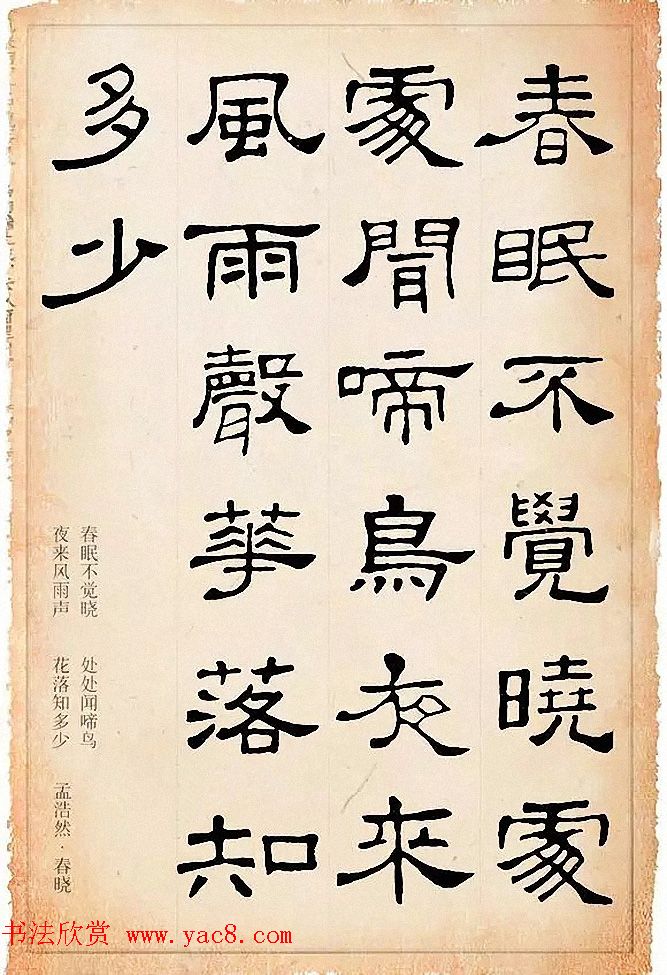 春眠不覺曉處
處聞啼鳥夜來
風雨聲華落知
多少
春眠不觉晓 处处闻啼鸟
夜来风雨声 花落知多少 孟浩然·春晓
书法欣赏 www.yac8.com